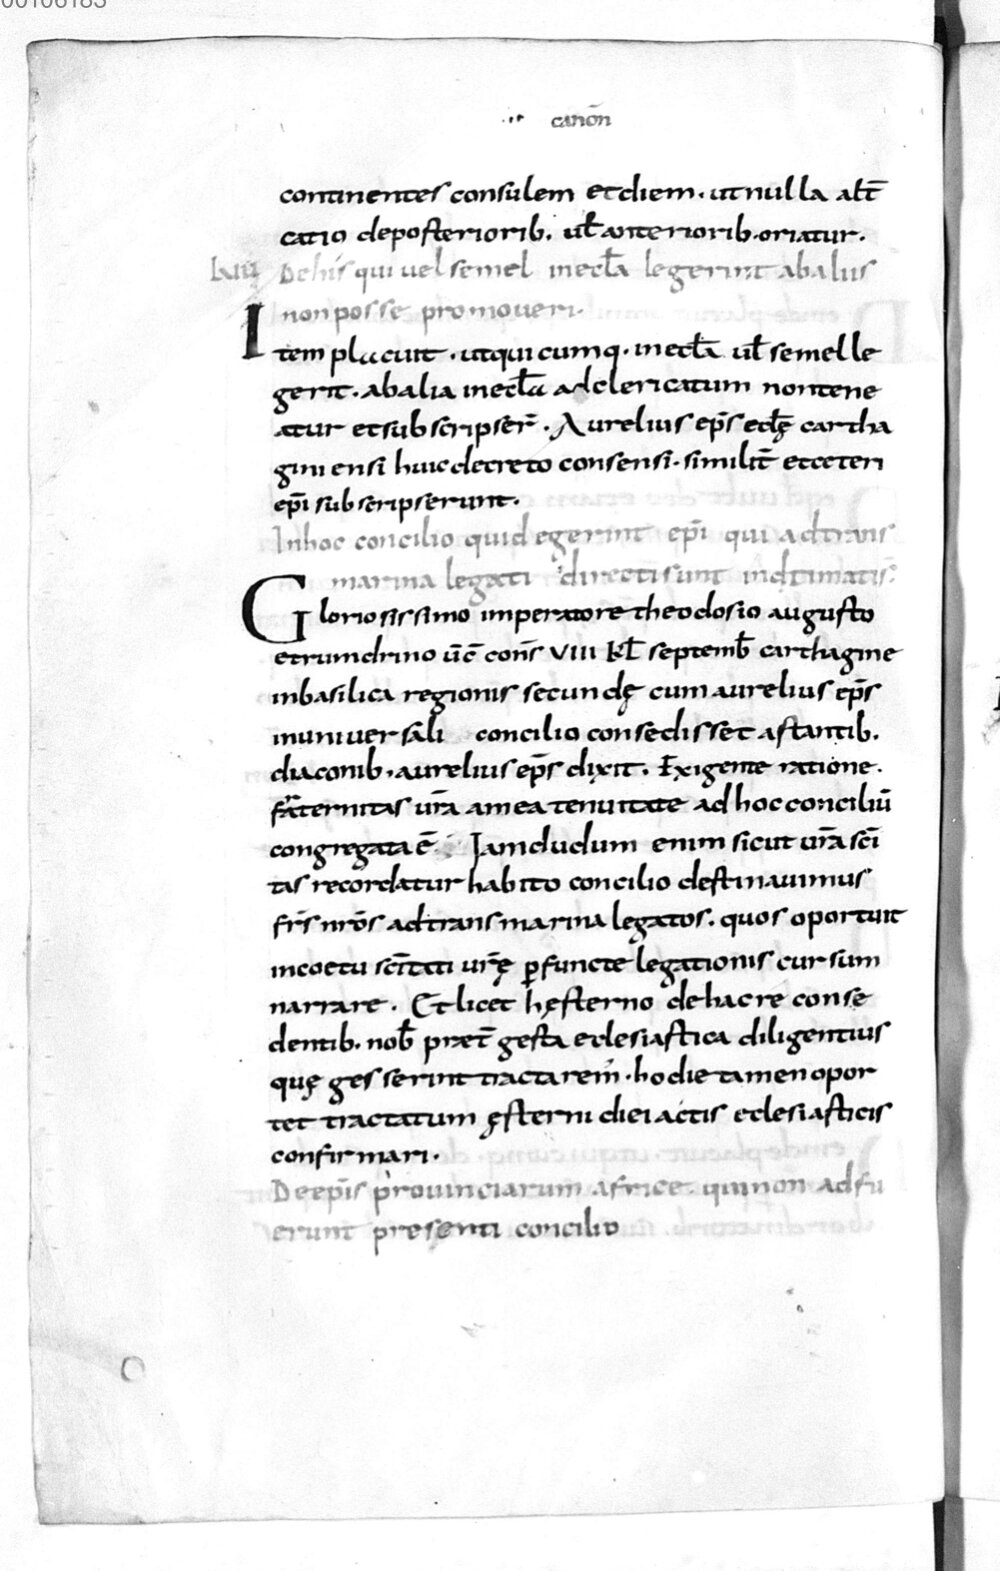 canoñ
continentes consulem et diem · ut nulla alt̄
catio de posteriorib· ul̄ anteriorib· oriatur ·
De his qui uel semel in eccl̄a legerint ab aliis
non posse promoueri ·
Item placuit · ut qui cumq· in eccl̄a ul̄ semel le
gerit · ab alia in eccl̄a ad clericatum non tene
atur et subscripser̄ · Aurelius ep̄s eccl̄ę cartha
giniensi huic decreto consensi · similit̄ et ceteri
ep̄i subscripserunt ·
In hoc concilio quid egerint ep̄i qui ad trans
marina legati directi sunt
Gloriosissimo imperatore theodosio augusto
et rumdrino ūc̄ cons̄ VIII kl̄ septemb̄ carthagine
in basilica regionis secundę cum aurelius ep̄s
in uniuersali concilio consedisset astantib·
diaconib· aurelius ep̄s dixit · Exigente ratione ·
fr̄aternitas ur̄a a mea tenuitate ad hoc conciliū
congregata ē Iam dudum enim sicut ur̄a sc̄i
tas recordatur habito concilio destinauimus
fr̄s nr̄os ad transmarina legatos · quos oportuit
in coetu sc̄itati ur̄ę ꝑfuncte legationis cursum
narrare · Et licet hęsterno de hac re conse
dentib· nob̄ praet̄ gesta eclesiastica diligentius
quę gesserint tractarem̄ · hodie tamen opor
tet tractatum ęsterni diei actis eclesiasticis
confirmari ·
De ep̄is prouinciarum africe · qui non adfu
erunt presenti concilio